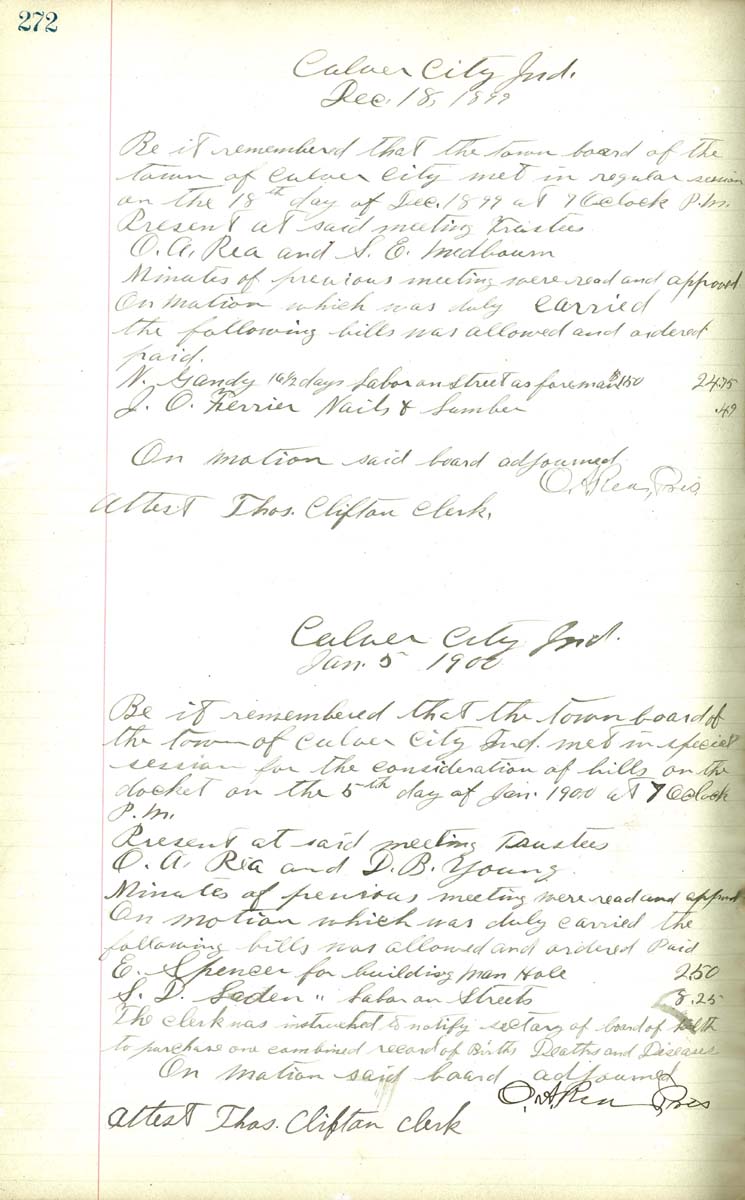 272
Culver City Ind.
Dec. 18, 1899
Be it remembered that the town board of the
town of Culver City met in regular session
on the 18th day of Dec. 1899 at 7 Oclock P.M.
Present at said meeting Trustees
O. A. Rea and S. E. Medbourn
Minutes of previous meeting were read and approved
On motion which was duly carried
the following bills was allowed and ordered
paid.
N. Gandy 16 1/2 days Labor on Street as foreman $1.50 24.75
J. O. Ferrier Nails & Lumber .49
On motion said board adjourned
O. A. Rea, Pres
Attest Thos. Clifton Clerk.
Culver City Ind.
Jan. 5 1900
Be it remembered that the town board of
the town of Culver City Ind. met in special
session for the consideration of bills on the
docket on the 5th day of Jan. 1900 at 7 Oclock
P.M.
Present at said meeting Trustees
O. A. Rea and D. B. Young
Minutes of previous meeting were read and approved
On motion which was duly carried the
following bills was allowed and ordered Paid
E. Spencer for building Man Hole 2.50
S. D. " Labor on Streets 8.25
The clerk was instructed to notify sectary of board of helth
to purchase one combined record of Births Deaths and Diseases
On motion said board adjourned
O. A. Rea Pres
Attest Thos. Clifton Clerk